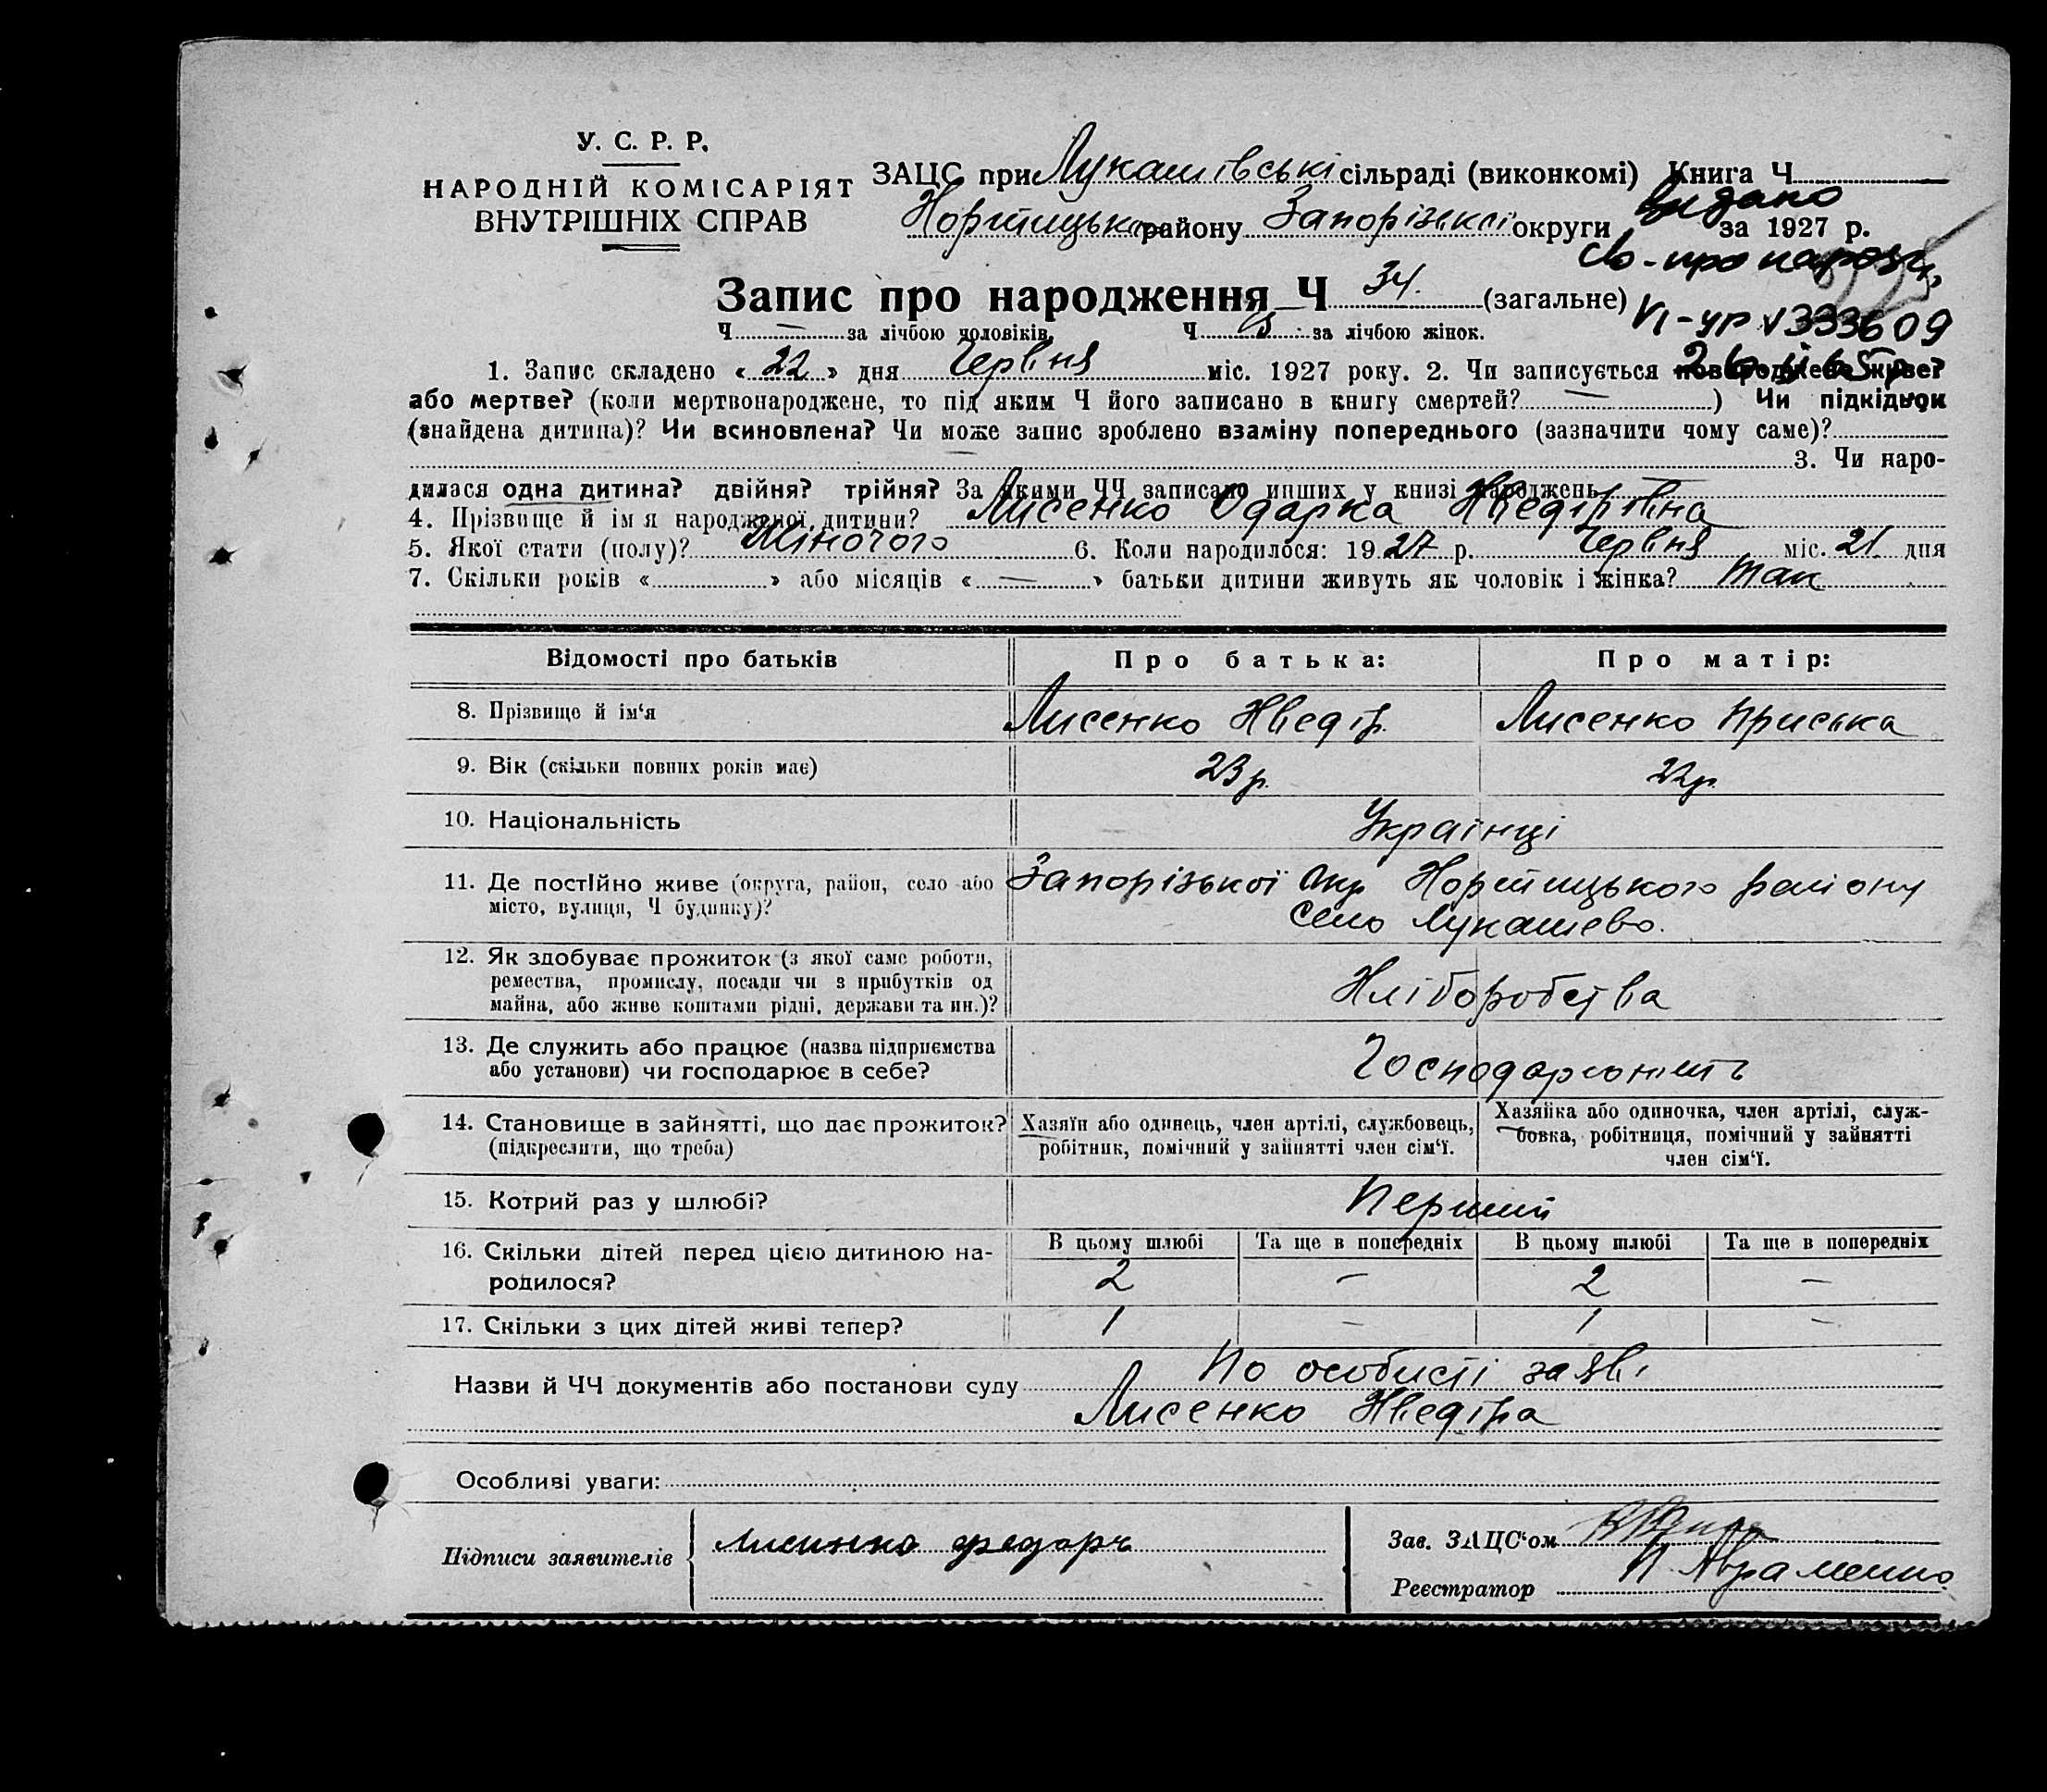 У. С. Р. Р.
НАРОДНІЙ КОМІСАРІЯТ
ВНУТРІШНІХ СПРАВ
ЗАЦС при Лукашівські сільраді (виконкомі) Книга Ч
Хортицько району Запорізької округи за 1927 р.
Видано
св-про народж
VI-УР 333609
Запис про народження Ч 34. (загальне)
Ч — за лічбою чоловіків, Ч за лічбою жінок.
1. Запис складено « 22 » дня Червня міс. 1927 року. 2. Чи записується новороджене живе?
або мертве? (коли мертвонароджене, то під яким Ч його записано в книгу смертей? — ) Чи підкідьок
(знайдена дитина)? Чи всиновлена? Чи може запис зроблено взаміну попереднього (зазначити чому саме)?
— 3. Чи наро-
дилася одна дитина? двійня? трійня? За якими ЧЧ записано инших у книзі народжень —
4. Прізвище й ім я народженої дитини? Лисенко Одарка Хведірівна
5. Якої стати (полу)? Жіночого 6. Коли народилося: 1927 р. Червня міс. 21 дня
7. Скільки років « » або місяців « — » батьки дитини живуть як чоловік і жінка? так
Відомості про батьків Про батька: Про матір:
8. Прізвище й ім‘я Лисенко Хведір. Лисенко Приська
9. Вік (скільки повних років має) 23 р. 22 р.
10. Національність Українці
11. Де постійно живе (округа, район, село або Запорізької Окр Хортицького району
місто, вулиця, Ч будинку)? село Лукашево.
12. Як здобуває прожиток (з якої саме роботи,
ремества, промислу, посади чи з прибутків од Хліборобства
майна, або живе коштами рідні, держави та ин.)?
13. Де служить або працює (назва підприємства
або установи) чи господарює в себе? Господарюнить
14. Становище в зайнятті, що дає прожиток? Хазяїн або одинець, член артілі, службовець, Хазяйка або одиночка, член артілі, служ-
(підкреслити, що треба) робітник, помічний у зайнятті член сім‘ї. бовка, робітниця, помічний у зайнятті
член сім‘ї.
15. Котрий раз у шлюбі? Перший
16. Скільки дітей перед цією дитиною на- В цьому шлюбі Та ще в попередніх В цьому шлюбі Та ще в попередніх
родилося? 2 — 2 —
17. Скільки з цих дітей живі тепер? 1 — 1 —
Назви й ЧЧ документів або постанови суду По особисті заяві
Лисенко Хведіра
Особливі уваги:
Підписи заявителів лисинко федоръ Зав. ЗАЦС‘ом
Реєстратор П. Авраменко